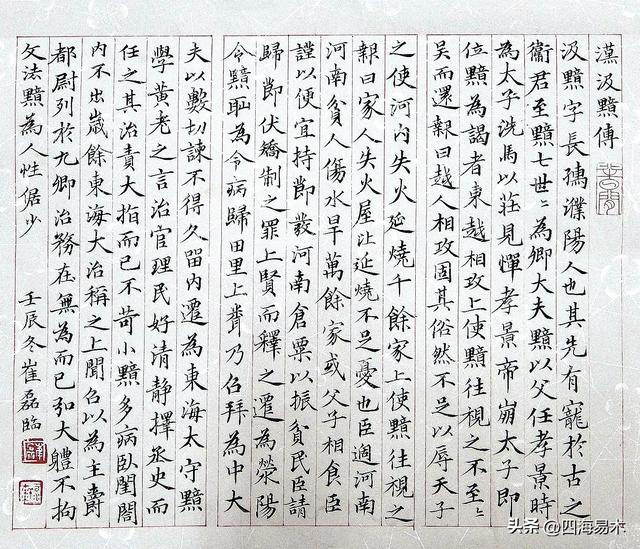 漢汲黯傳
汲黯字長孺濮陽人也其先有寵於古之
衛君至黯七世〻為卿大夫黯以父任孝景時
為太子洗馬以莊見憚孝景帝崩太子即
位黯為謁者東越相攻上使黯往視之不至〻
吳而還報曰越人相攻固其俗然不足以辱天子
之使河內失火延燒千餘家上使黯往視之
報曰家人失火屋比延燒不足憂也臣過河南
河南貧人傷水旱萬餘家或父子相食臣
謹以便宜持節發河南倉粟以振貧民臣請
歸節伏矯制之罪上賢而釋之遷為滎陽
令黯恥為令病歸田里上聞乃召拜為中大
夫以數切諫不得久留內遷為東海太守黯
學黃老之言治官理民好清靜擇丞史而
任之其治責大指而已不苛小黯多病臥閨閤
內不出歲餘東海大治稱之上聞召以為主爵
都尉列於九卿治務在無為而已弘大體不拘
文法黯為人性倨少
壬辰冬崔磊臨
头条 @四海易木